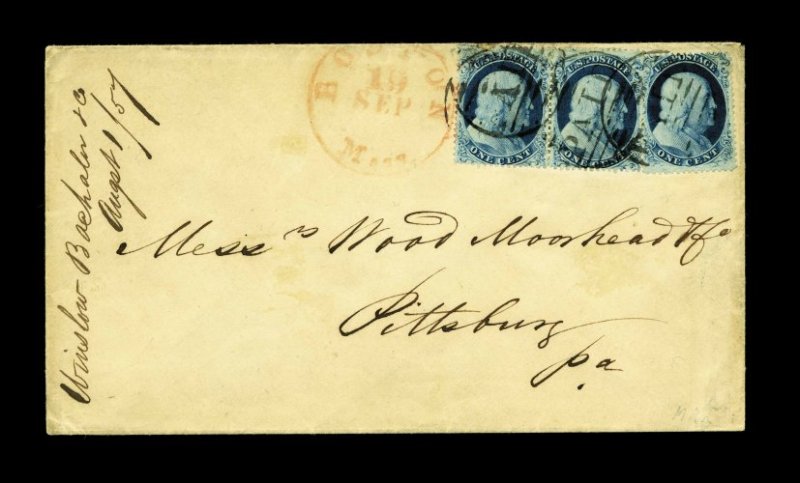 Winslow Bachaler & Co
Augst 1/57
BOSTON
19
SEP
Mass.
U.S. POSTAGE
ONE CENT
U.S. POSTAGE
ONE CENT
U.S. POSTAGE
ONE CENT
PAI
Messrs Wood Moorhead & Co
Pittsburg
pa